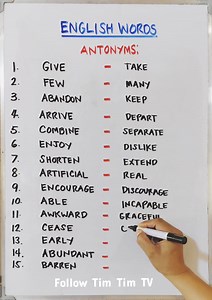 ENGLISH WORDS
ANTONYMS:
1. GIVE - TAKE
2. FEW - MANY
3. ABANDON - KEEP
4. ARRIVE - DEPART
5. COMBINE - SEPARATE
6. ENJOY - DISLIKE
7. SHORTEN - EXTEND
8. ARTIFICIAL - REAL
9. ENCOURAGE - DISCOURAGE
10. ABLE - INCAPABLE
11. AWKWARD - GRACEFUL
12. CEASE - C
13. EARLY -
14. ABUNDANT -
15. BARREN -
Follow Tim Tim TV